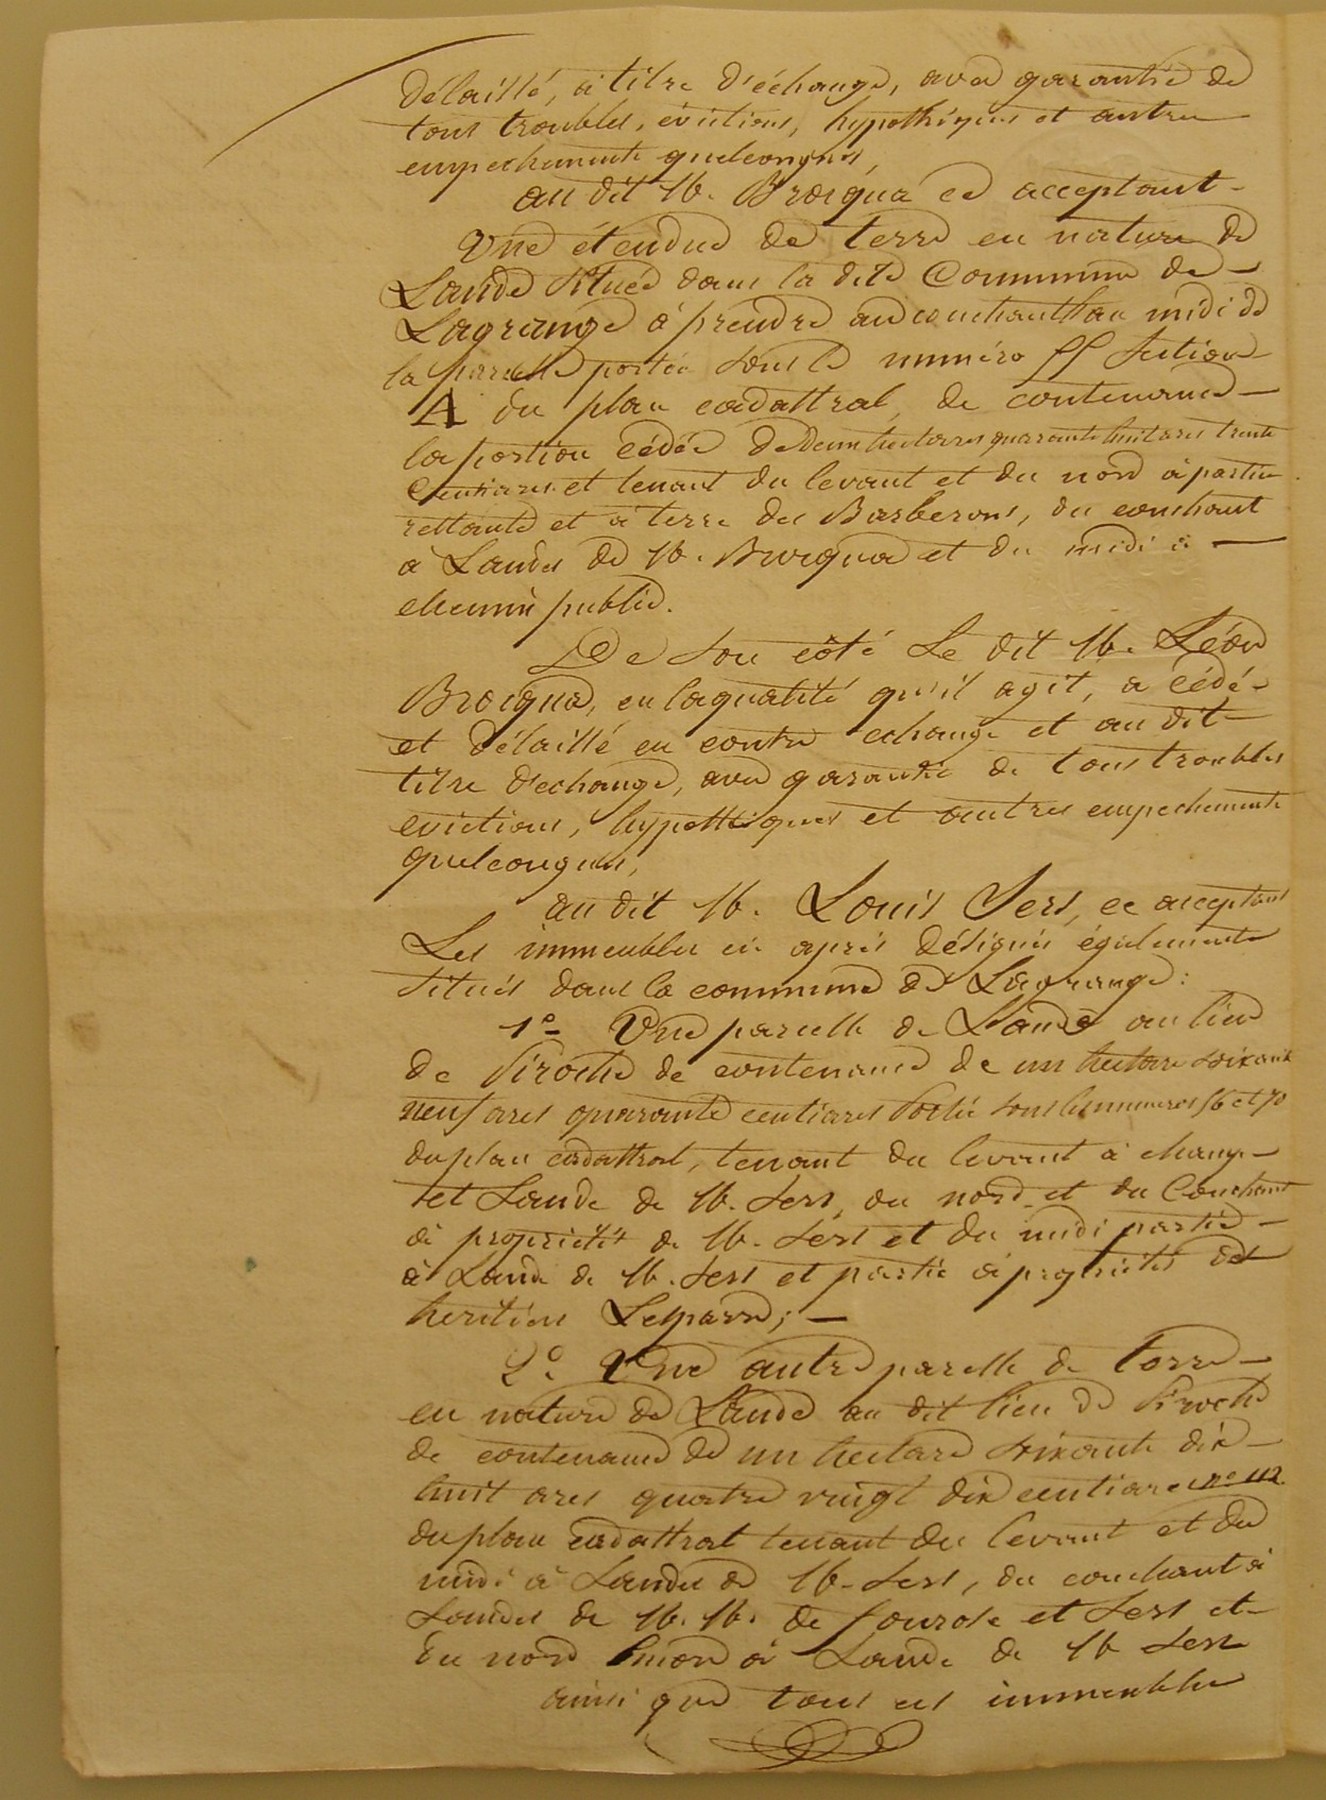 délaissé, à titre d'échange, avec garantie de
tous troubles, évictions, hypothèques et autres
empechements quelconques,
au dit M. Brocqua ce acceptant
Une étendue de terre en nature de
Lande située dans la dite Commune de
Lagrange à prendre au couchant & au midi de
la parcelle portée sous le numéro section
A du plan cadastral, de contenance
la portion cédée de deux hectares quarante huit ares trente
Centiares et tenant du levant et du nord à partie
restante et à terre des Barberons, du couchant
à Landes de M. Brocqua et du midi à
chemin public.
De son côté Le dit M. Léon
Brocqua, en la qualité qu'il agit, a cédé
et délaissé en contre echange et au dit
titre d'echange, avec garantie de tous troubles
evictions, hypothèques et autres empechements
quelconques,
au dit M. Louis Sers, ce acceptant
Les immeubles ci après désignés également
situés dans la commune de Lagrange :
1º Une parcelle de Lande au lieu
de Piroche de contenance de un hectare soixante
neuf ares quarante centiares Portée sous les numeros 56 et 70
du plan cadastral, tenant du levant à
et Lande de M. Sers, du nord et du Couchant
à propriétés de M. Sers et du midi partie
à Lande de M. Sers et partie à propriétés des
heritiers ;
2º Une autre parcelle de terre
en nature de Lande au dit lieu de Piroche
de contenance de un hectare soixante dix
huit ares quatre vingt dix centiares nº 112
du plan cadastral tenant du levant et du
midi à Landes de M. Sers, du couchant à
Landes de M. M. de et Sers et
du nord à Lande de M Sers
ainsi que tous ces immeubles